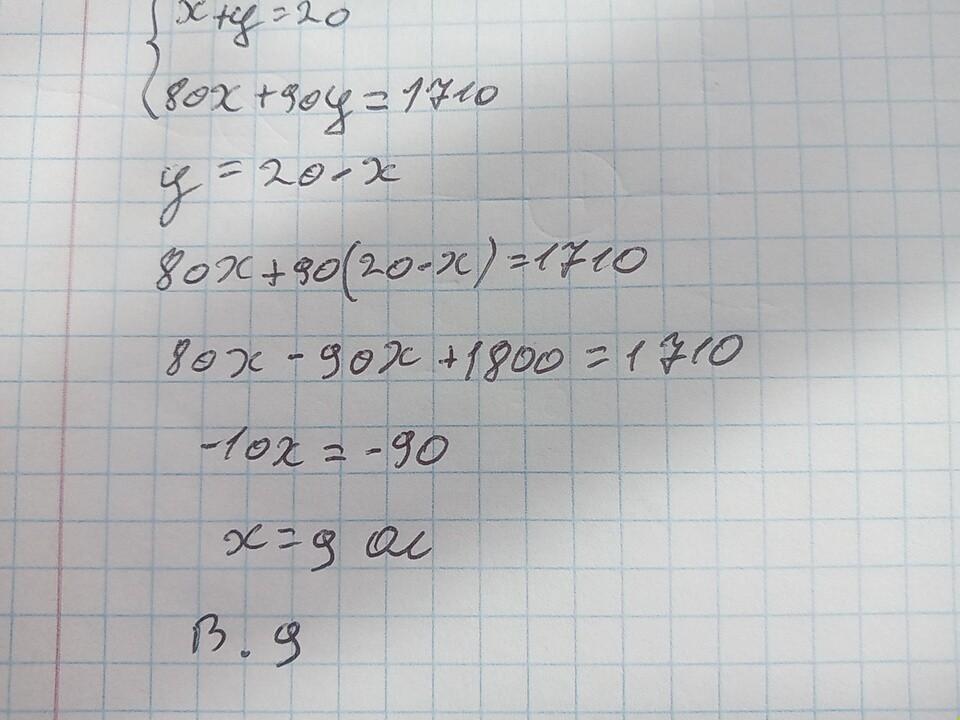 x+y=20
80x+90y=1710
y=20-x
80x+90(20-x)=1710
80x-90x+1800=1710
-10x=-90
x=9
В. 9